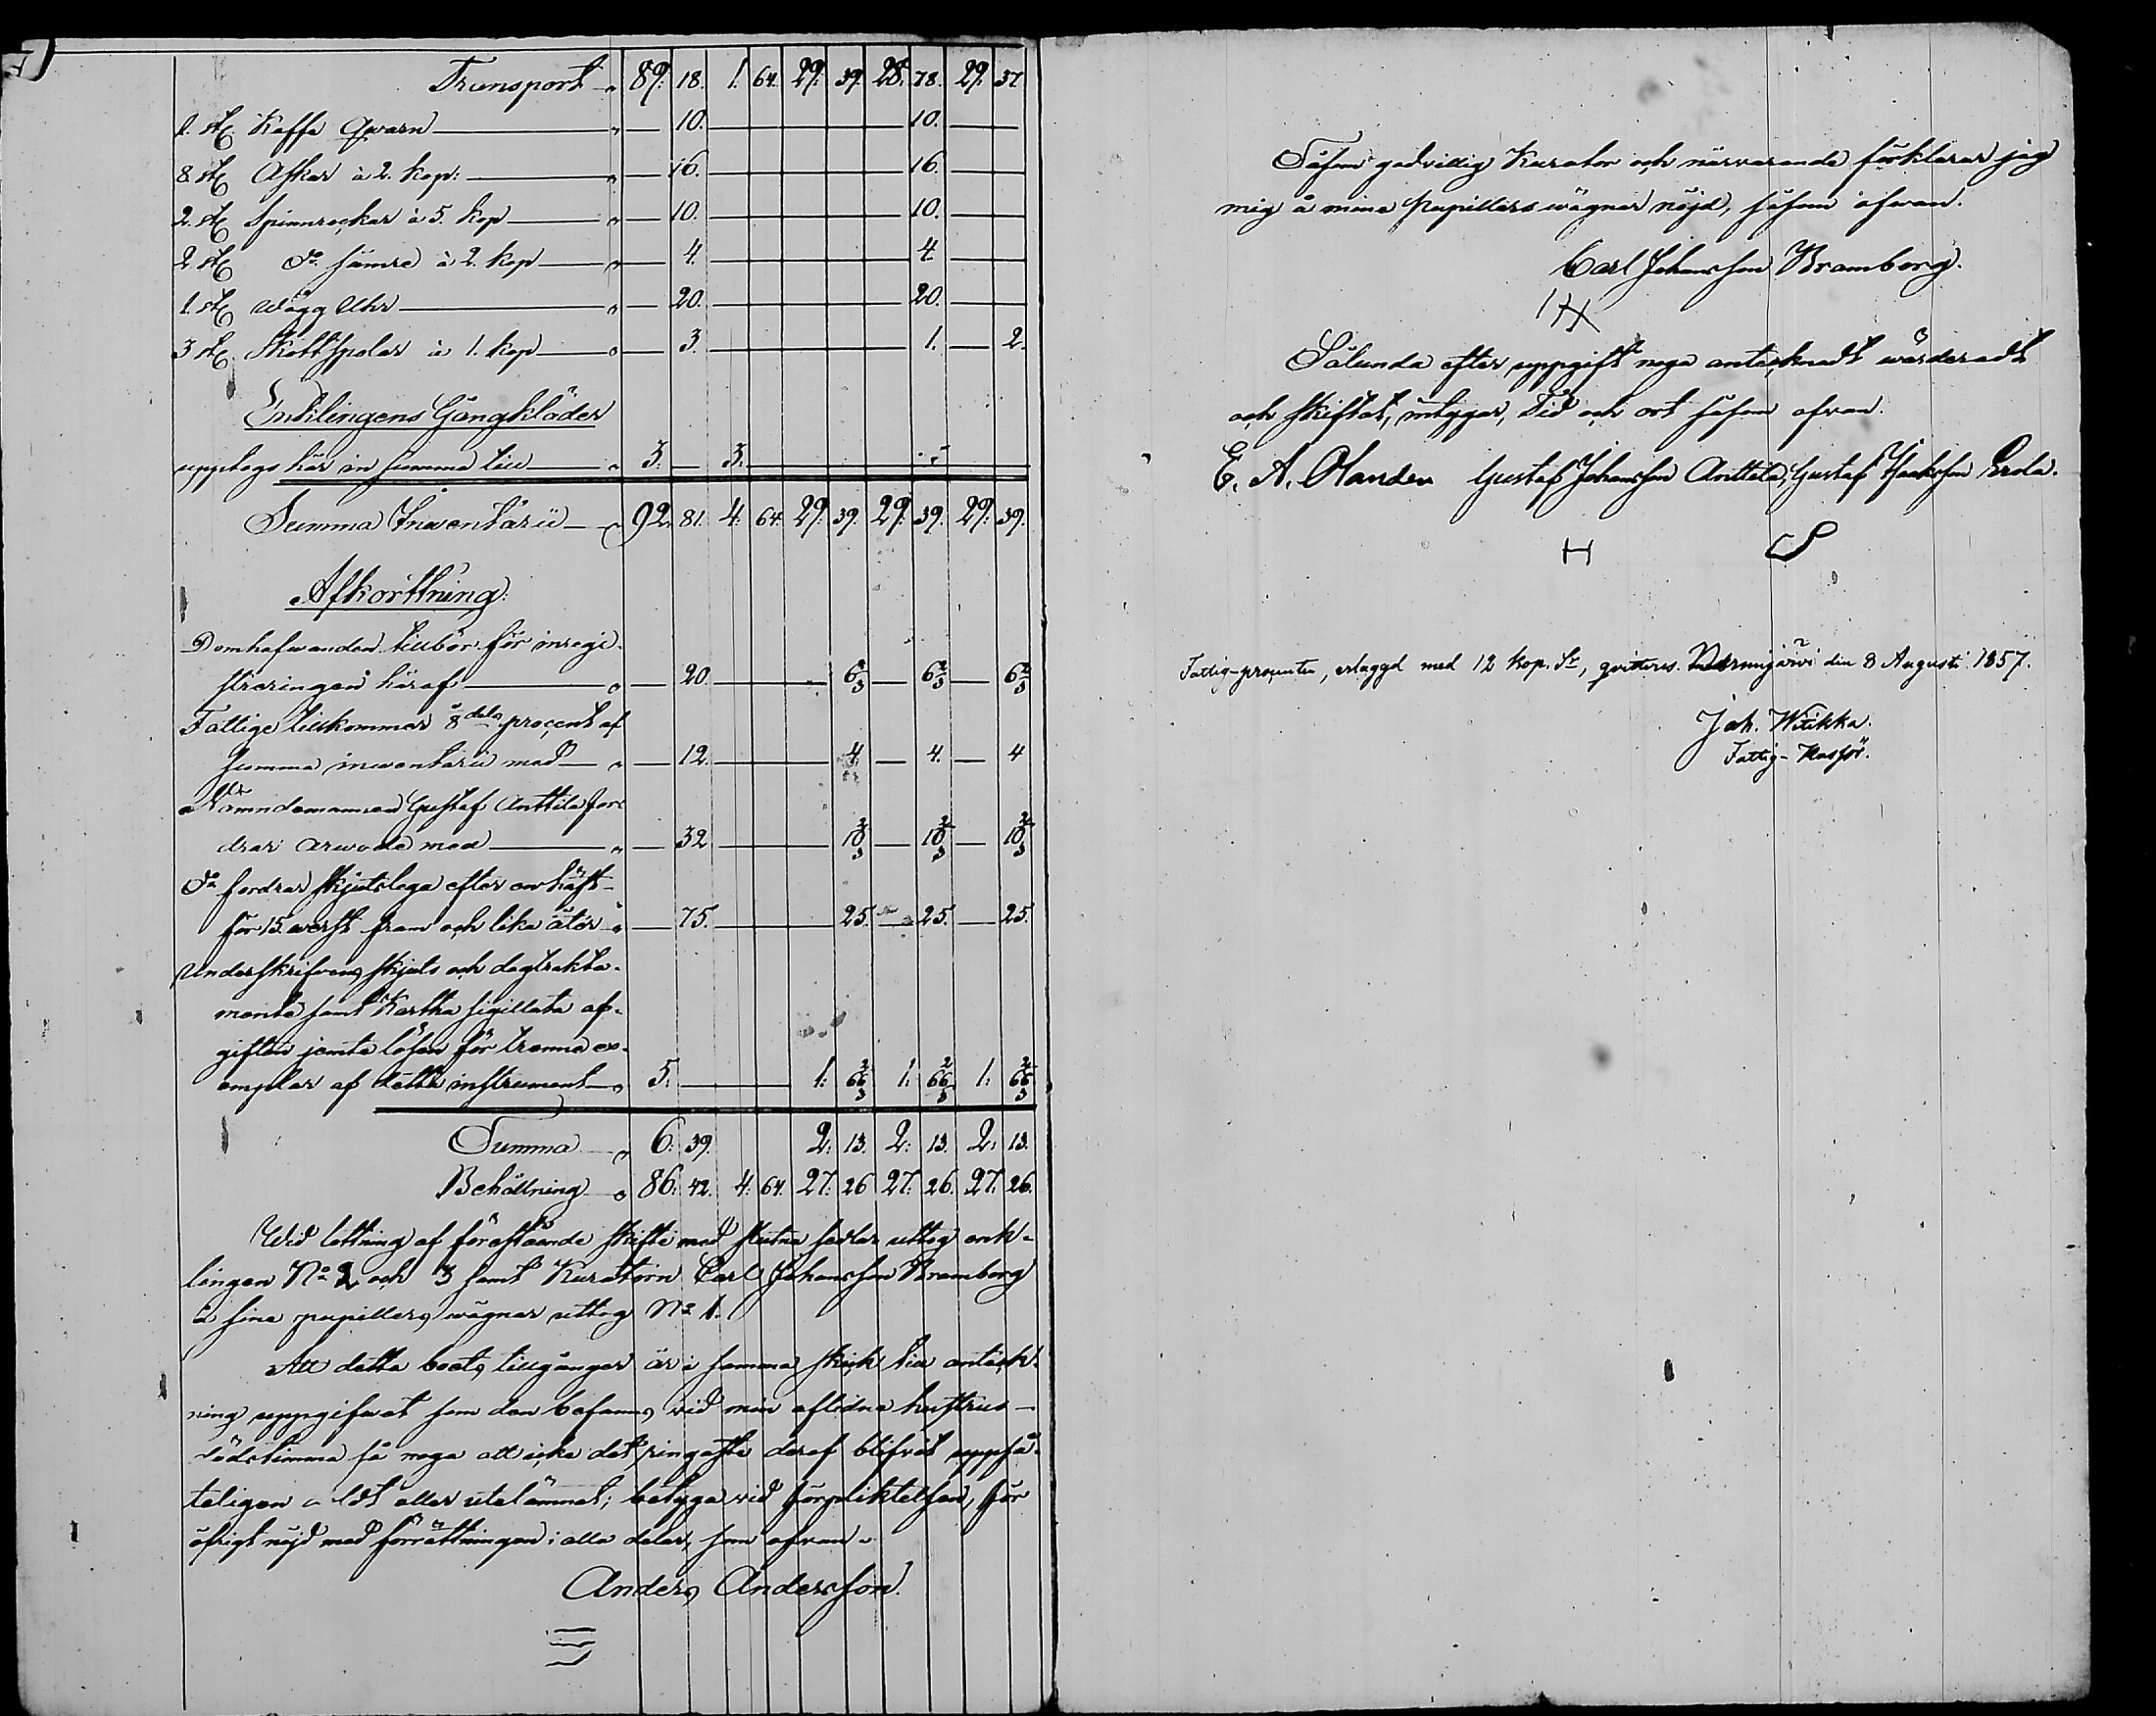 Transport " 89. 18. 1. 64. 29. 39. 28. 78. 29. 37
1. st Kaffe Qwarn " — 10. — 10. —
8. st Askar à 2. kop: " — 16. — 16. —
2. st Spinnrockar à 5. kop " — 10. — 10. —
2 st Do sämre à 2. kop " — 4. — 4 —
1. st Wägg Uhr " — 20. — 20. —
3 st Skottspolar à 1. kop " — 3. — 1. — 2.
Enklingens Gångkläder
upptogs här in summa till " 3. — 3. —
Summa Inventarii " 92. 81. 4. 64. 29. 39. 29. 39. 29. 39.
Afkorttning.
Domhafwanden tillbör för inregi-
streringen häraf " — 20. — 6 2/3 — 6 2/3 — 6 2/3
Fattige tillkommer 8dels procent af
summa inwentarii med " — 12. — 4. — 4. — 4
Nämndemannen Gustaf Anttila for-
drar arwode med " — 32 — 10 2/3 — 10 2/3 — 10 2/3
Do fordrar skjutslega efter en häst
för 15 werst fram och lika åter " — 75. — 25. — 25. — 25.
Underskrifvens skjuts och dagtrakta-
mente samt Kartha sigillata af-
giften jemte lösen för trenne ex-
emplar af detta instrument " 5. — 1: 66 2/3 1: 66 2/3 1: 66 2/3
Summa " 6. 39. 2: 13. 2: 13. 2: 13.
Behållning " 86. 42. 4. 64. 27. 26 27. 26. 27. 26.
Wid lottning af förestående skifte med slutna sedlar uttog enk-
lingen No 2 och 3 samt Kuratorn Carl Johansson Bramborg
å sine pupillers wägnar uttog No 1.
Att detta boets tillgångar är i samma skick till anteck-
ning uppgifwet som den befanns vid min aflidna hustrus
dödstimma så noga att icke det ringaste deraf blifvit uppså-
teligen dölt eller utelämnat; betygar vid förpliktelsen, för
öfrigt nöjd med förrättningen i alla delar, som ofvan.
Anders Andersson.
Såsom godvillig Kurator och närvarande förklarar jag
mig å mina Pupillers wägnar nöjd, såsom ofwan.
Carl Johansson Bramborg.
Sålunda efter uppgift noga antecknadt wärderadt
och skiftat, intygar, Tid och ort såsom ofvan.
E. A. Olander Gustaf Johansson Anttila, Gustaf Isaksson Erola.
H S
Fattig-procenten, erlaggd med 12 kop. Sr, qvitteras. Nurmijärvi den 8 Augusti 1857.
Joh. Wiikka.
Fattig-Kassör.